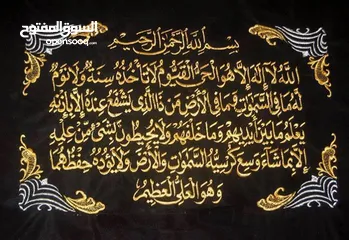 السوق المفتوح
opensooq.com
بسم الله الرحمن الرحيم
الله لا إله إلا هو الحي القيوم لا تأخذه سنة ولا نوم
له ما في السموات وما في الأرض من ذا الذي يشفع عنده إلا بإذنه
يعلم ما بين أيديهم وما خلفهم ولا يحيطون بشيء من علمه
إلا بما شاء وسع كرسيه السموات والأرض ولا يؤده حفظهما
وهو العلي العظيم